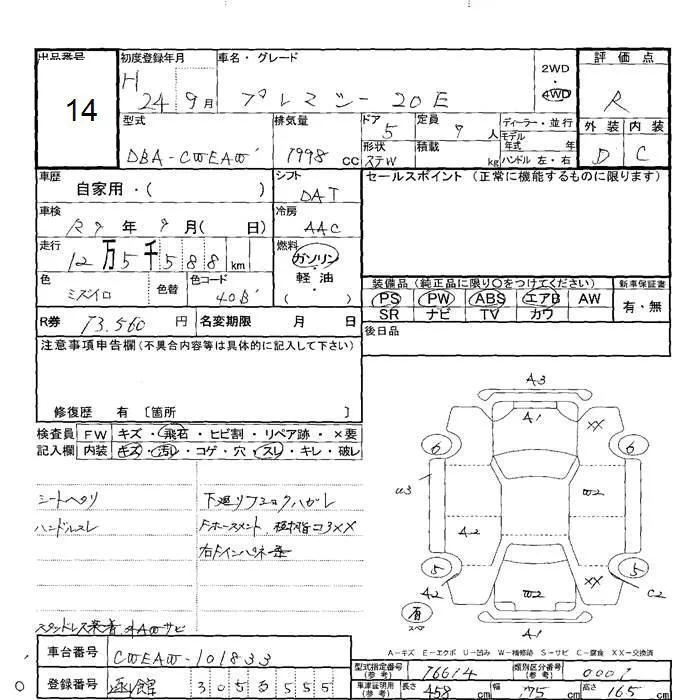 出品番号 14
初度登録年月 H 24 9月
車名・グレード プレマシー 20E
2WD
4WD
評価点 R
外装 D 内装 C
型式 DBA-CWEAW
排気量 1998 cc
ドア 5
定員 7 人
形状 ステW
積載 kg
ディーラー・並行
モデル年式 年
ハンドル 左・右
車歴 自家用・( )
シフト DAT
セールスポイント (正常に機能するものに限ります)
車検 R7 年 9 月( 日)
冷房 AAC
走行 12万5千588 km
燃料 ガソリン・軽油・( )
色 ミズイロ
色替
色コード 40B
装備品 (純正品に限り○をつけてください)
新車保証書
PS PW ABS エアB AW
有・無
SR ナビ TV カワ
R券 73.560 円
名変期限 月 日
後日品
注意事項申告欄(不具合内容等は具体的に記入して下さい)
修復歴 有 [箇所 ]
検査員記入欄
FW キズ・飛石・ヒビ割・リペア跡・×要
内装 キズ・汚レ・コゲ・穴・スレ・キレ・破レ
シートヘタリ
ハンドルスレ
下廻りフロックハガレ
A3
A1
XX
6
6
U3
W2
A2
5
5
XX
A2
W2
C2
有
スペア
A1
A-キズ E-エクボ U-凹み W-補修跡 S-サビ C-腐食 XX-交換済
車台番号 CWEAW-101833
登録番号 305555
型式指定番号(参考) 16614
類別区分番号(参考) 0001
車庫証明用(参考) 長さ 458 cm 幅 175 cm 高さ 165 cm